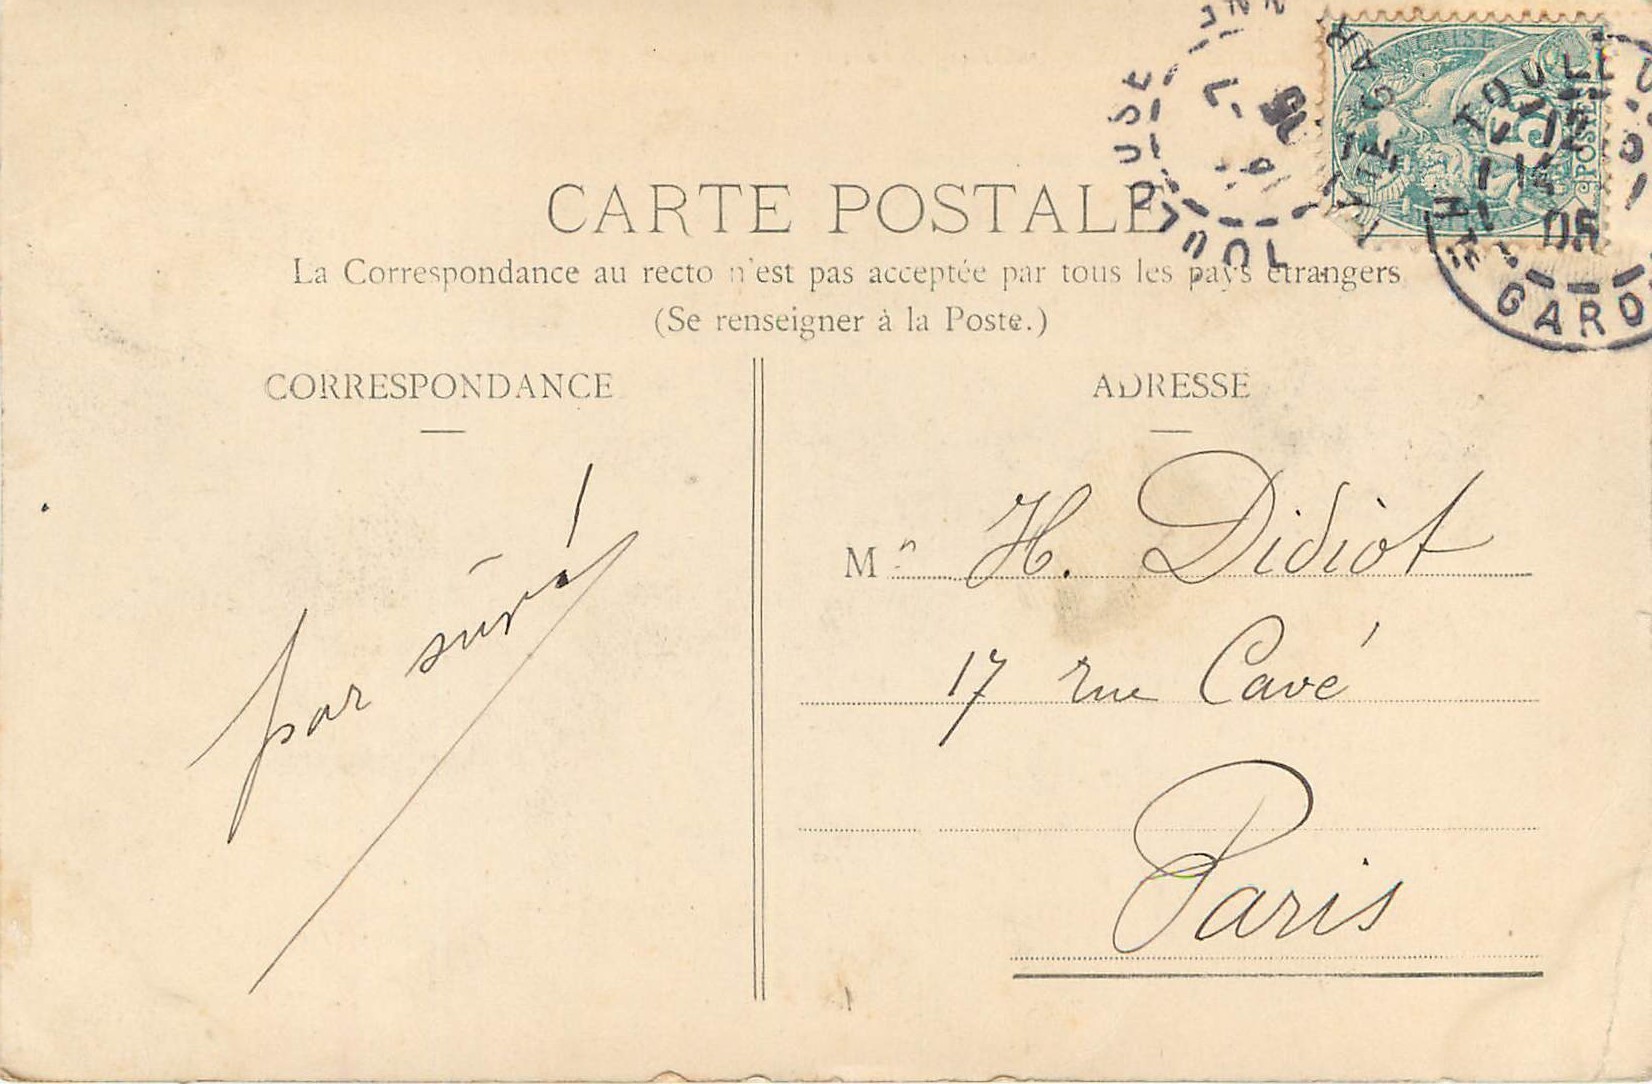 CARTE POSTALE
La Correspondance au recto n'est pas acceptée par tous les pays étrangers
(Se renseigner à la Poste.)
CORRESPONDANCE
ADRESSE
par
M H. Didiot
17 rue Cavé
Paris
TOULOUSE
5
POSTES
TOULOUSE
05
GARONNE